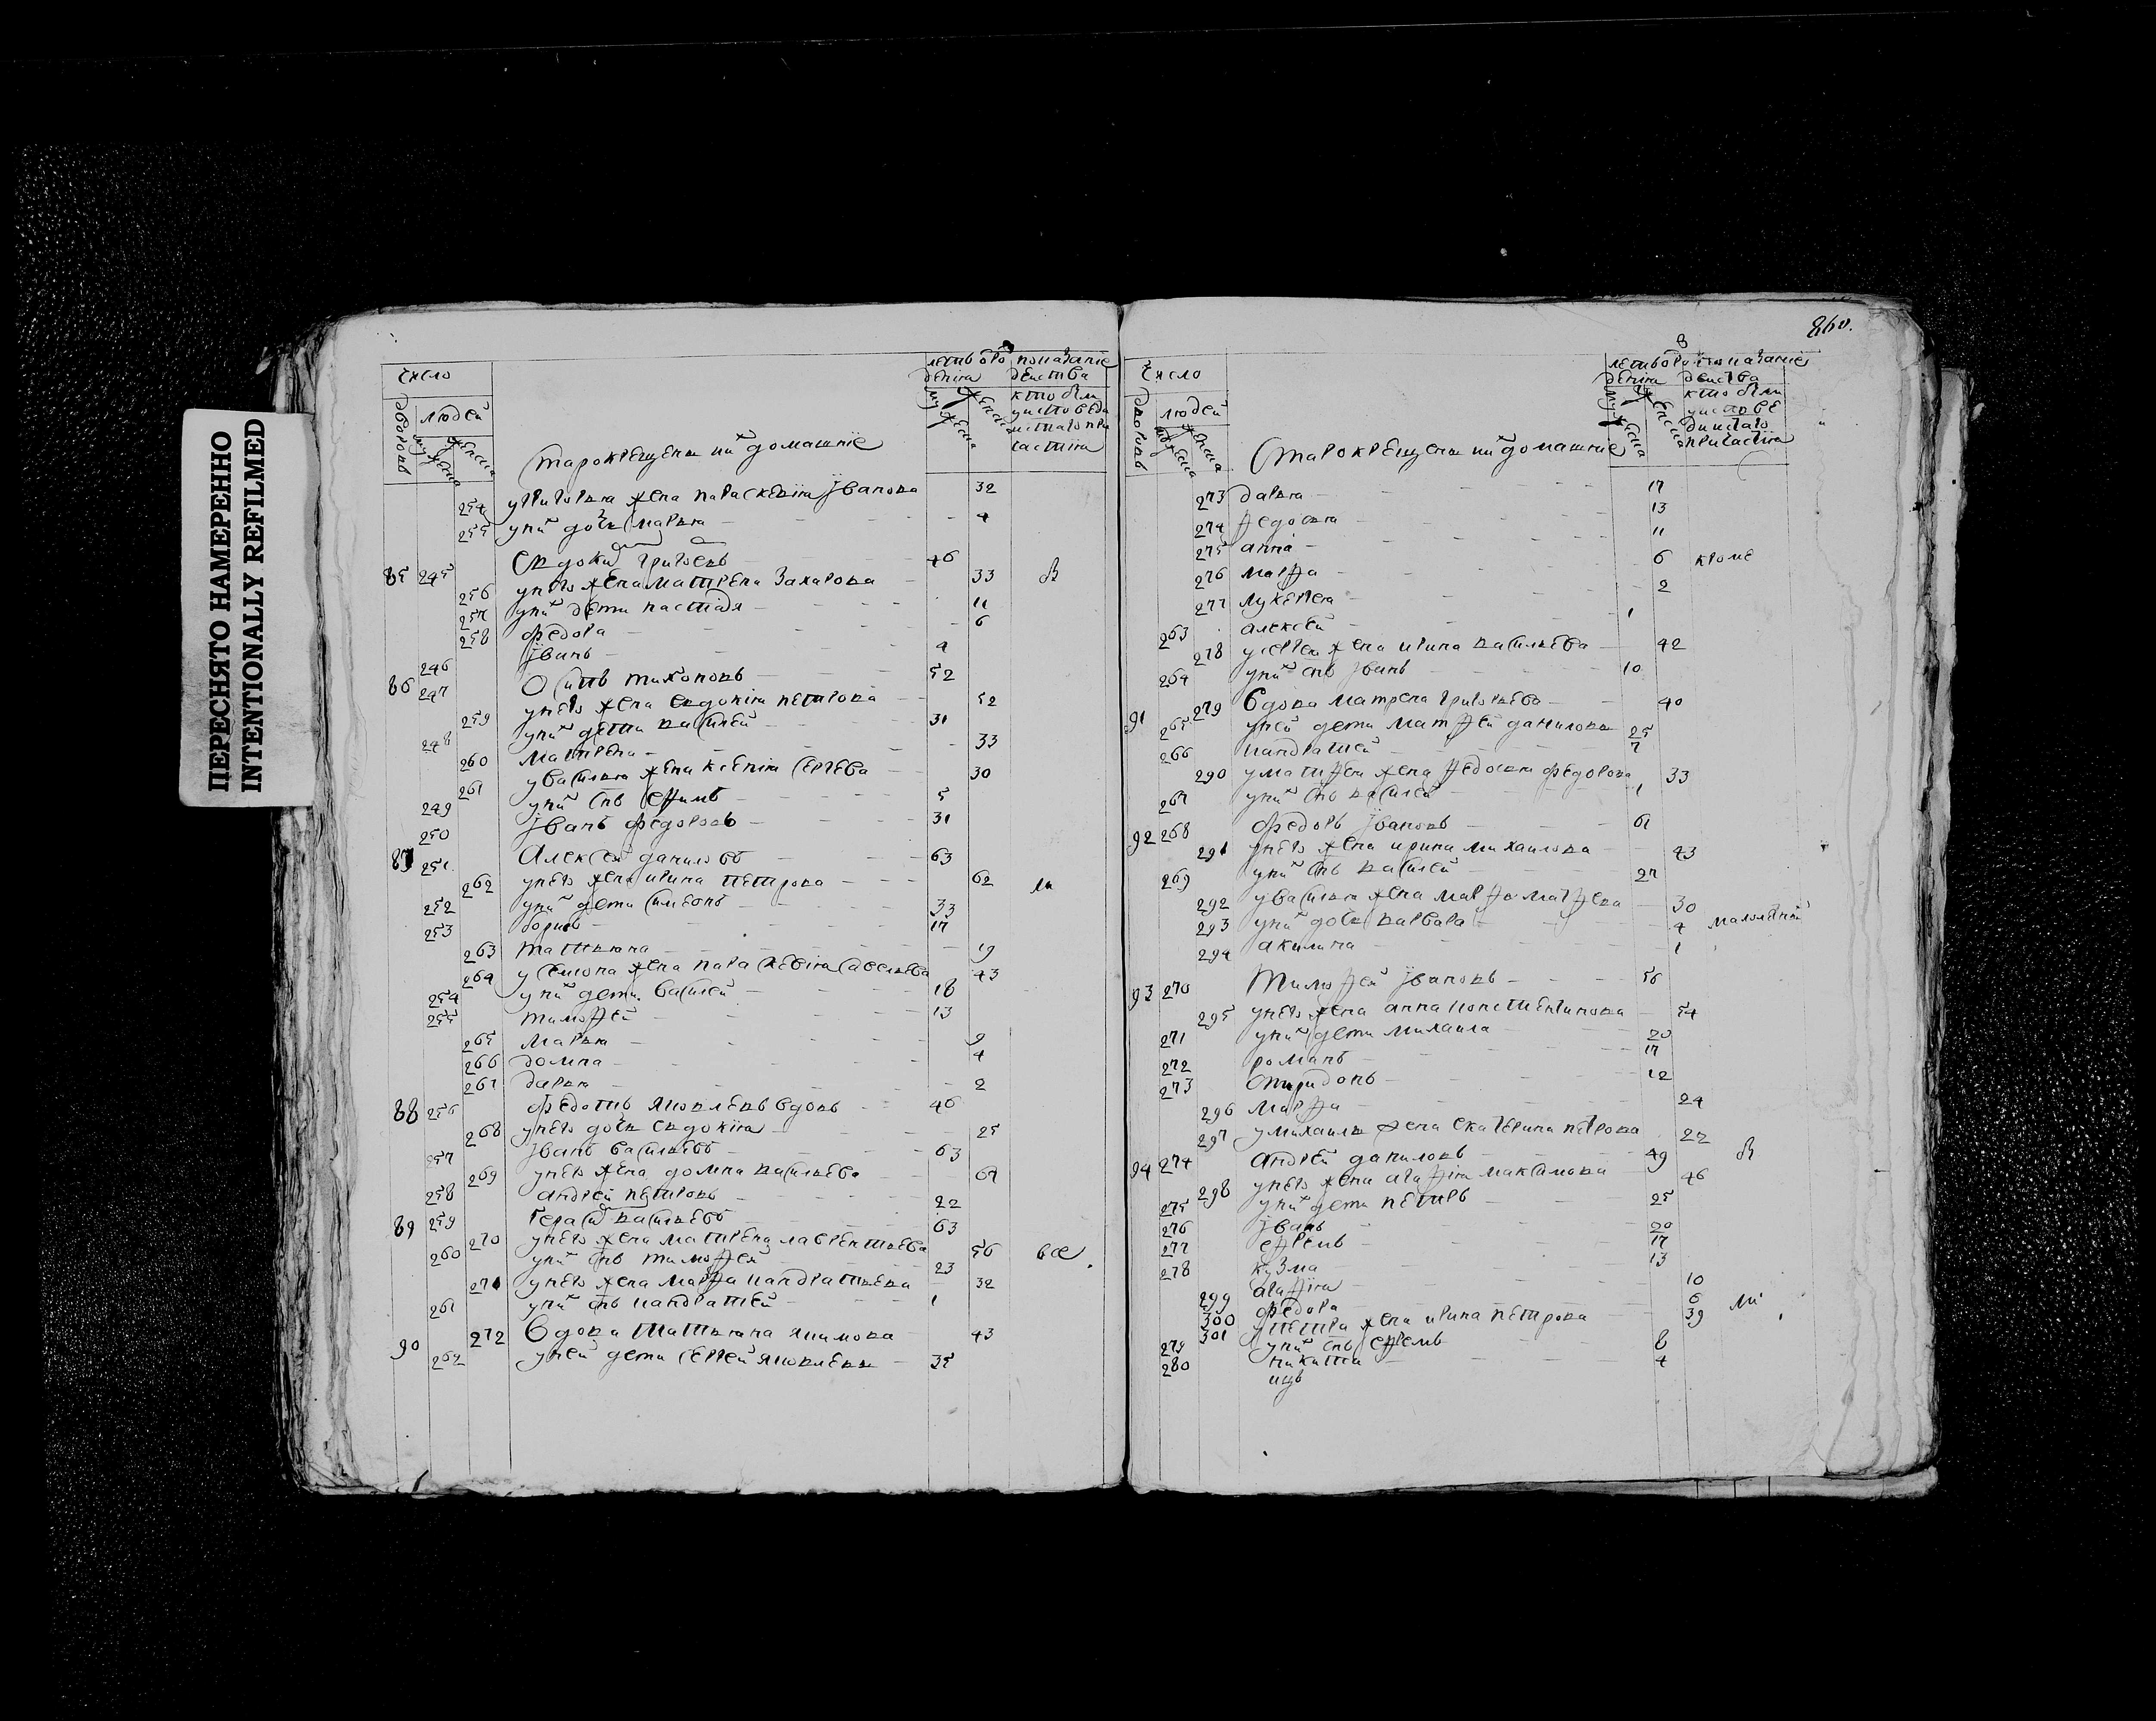 ПЕРЕСНЯТО НАМЕРЕННО
INTENTIONALLY REFILMED
число
людей
дворовъ
мужеска
женска
старокрещены и их домашние
летъ от рождения
показание действа кто были у исповеди и святаго причастия
254 у григорья жена параскевия Iванова 32
255 у них дочь марья 4
85 245 Евдоким григорьев 46
256 у него жена матрена Захарова 33
257 у них дети настася 11
258 федора 6
246 Iванъ 4
86 247 Осипъ тихоновъ 52
259 у него жена евдокия петрова 52
248 у них дети василей 31
260 матрена 33
261 у василья жена ксения сергева 30
249 у них снъ ефимъ 5
250 Iванъ федоровъ 31
87 251 Алексей даниловъ 63
262 у него жена ирина петрова 62
252 у них дети симеонъ 33
253 борисъ 17
263 татьяна 19
264 у семиона жена параскевия савельева 43
254 у них дети василей 18
255 тимофей 13
265 марья 9
266 домна 4
267 дарья 2
88 256 федотъ яковлевъ вдовъ 46
268 у него дочь евдокия 25
257 Iванъ васильевъ 63
269 у него жена домна васильева 67
258 андрей петровъ 22
89 259 герасим васильевъ 63
270 у него жена матрена лаврентьева 56 все
260 у них снъ тимофей 23
271 у него жена марфа кандратьева 32
261 у них снъ кандратей 1
90 272 Вдова татьяна якимова 43
262 у ней дети сергей яковлевъ 35
260.
число
людей
дворовъ
мужеска
женска
старокрещены и их домашние
летъ от рождения
показание действа кто были у исповеди и святаго причастия
273 дарья 17
274 федосья 13
275 анна 11
276 марфа 6 кроме
277 лукерья 2
263 алексей 1
278 у сергея жена ирина васильева 42
264 у них снъ Iванъ 10
91 279 Вдова матрена григорьева 40
265 у ней дети матфей данилов 25
266 кандратей 7
290 у матфея жена федосья федорова 33
267 у них снъ василей 1
92 268 федоръ Iвановъ 61
291 у него жена ирина михаилова 43
269 у них снъ василей 27
292 у василья жена марфа матфева 30
293 у них дочь варвара 4 малолетный
294 акилина 1
93 270 Тимофей Iвановъ 56
295 у него жена анна константинова 54
271 у них дети михаила 20
272 романъ 17
273 спиридонъ 12
296 марфа 24
297 у михаилы жена екатерина петрова 22
94 274 андрей даниловъ 49
298 у него жена агафия максимова 46
275 у них дети петръ 25
276 Iванъ 20
277 ефремъ 17
278 кузма 13
299 агафия 10
300 федора 6
301 у петра жена ирина петрова 39
279 у них снъ ефремъ 8
280 никита 4